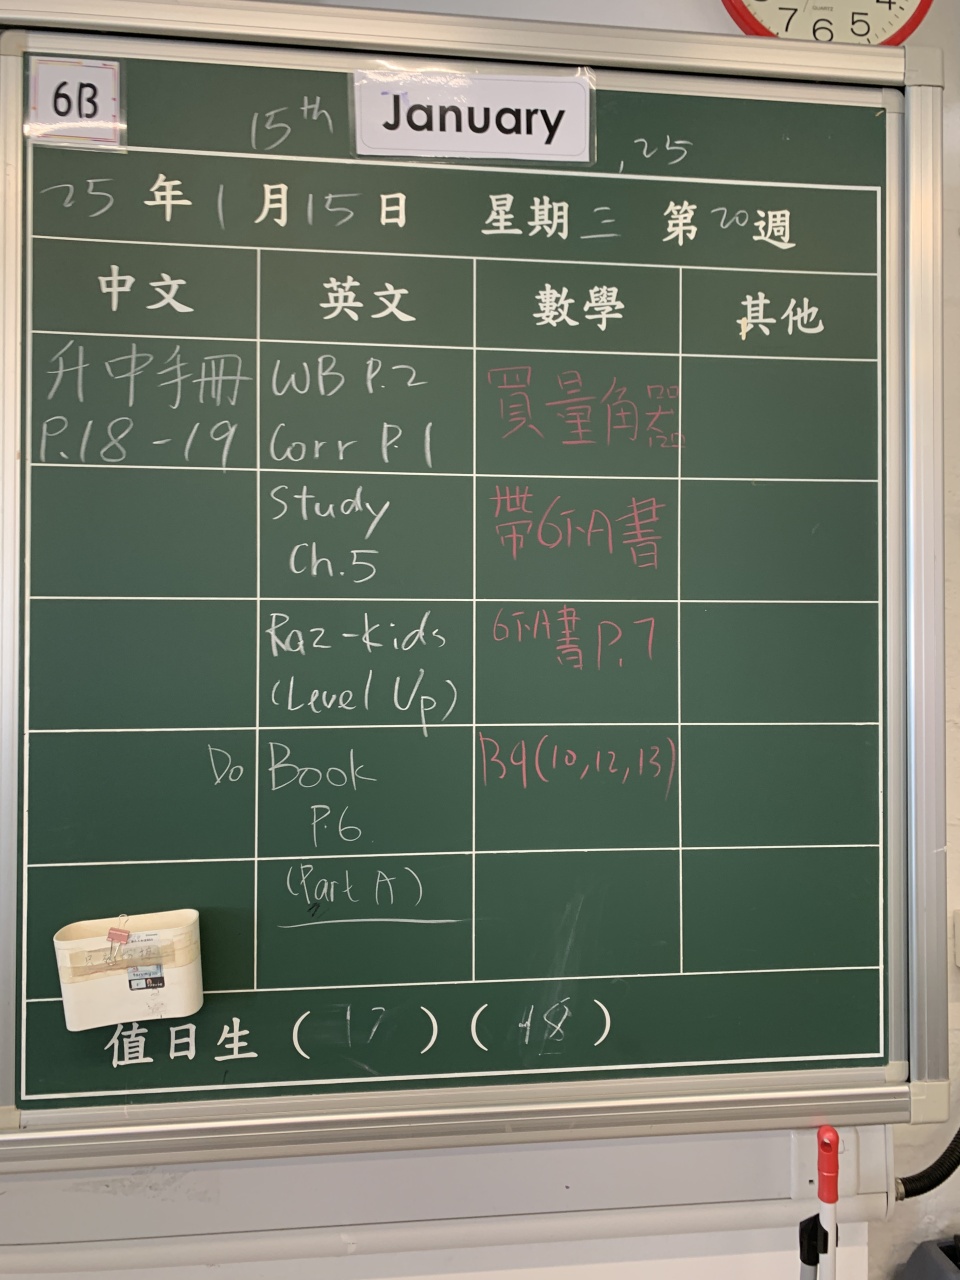 7 6 5 4
6B
January
15th , 25
25 年 1 月 15 日 星期 三 第 20 週
中文 英文 數學 其他
升中手冊
P.18-19
WB P.2
Corr P.1
買量角器
Study
Ch.5
帶6下A書
Raz-kids
(Level Up)
6下A書 P.7
Do Book
P.6
B9(10,12,13)
(Part A)
值日生 ( 17 ) ( 18 )